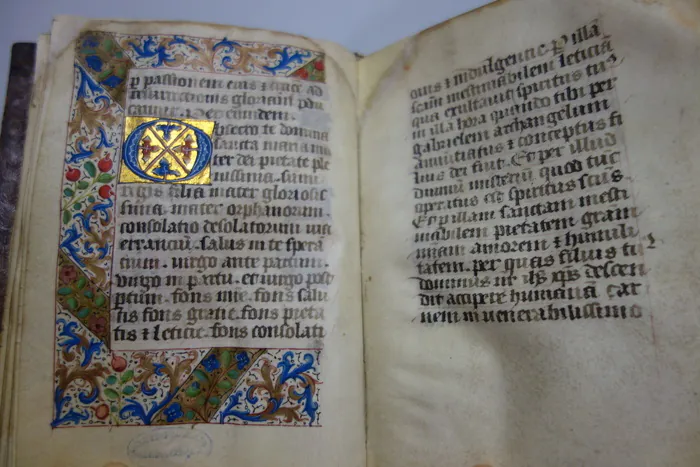 p passionem eius et cruce ad
resurrectionis gloriam pdu
camur. p eundem.
Obsecro te domina
sancta maria ma
ter dei pietate ple
nissima. sum
regis filia mater gloriosis
sima. mater orphanorum.
consolatio desolatorum. via
errancium. salus in te spera
tium. virgo ante partum.
virgo in partu. et virgo post
partum. fons mie. fons salu
tis fons gratie. fons pieta
tis ⁊ leticie. fons consolati
onis ⁊ indulgentie. P illā
scām inestimabilem leticiā
qua exultavit spiritus tuꝰ
in illa hora quando tibi per
gabrielem archangelum
annūtiatus ⁊ conceptus fi
lius dei fuit. Et per illud
divinū misteriū quod tūc
operatus est spiritus scūs.
Et p illam sanctam inesti
mabilem pietatem gratī
misericordiam amorem ⁊ humili
tatem. per quas filius tuꝰ
dominus nr̄ ihs xp̄s descen
dit accipere humanā car
nem in venerabilissimo